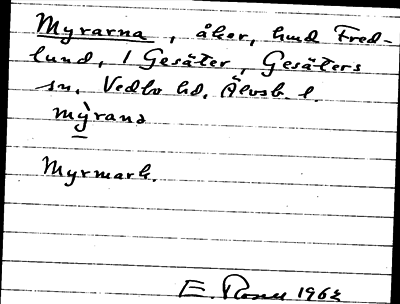 Myrarna, åker, hmd Fred-
lund, 1 Gesäter, Gesäters
sn, Vedbo hd, Älvsb. l.
mỳrana
Myrmark.
E. Rosell 1962